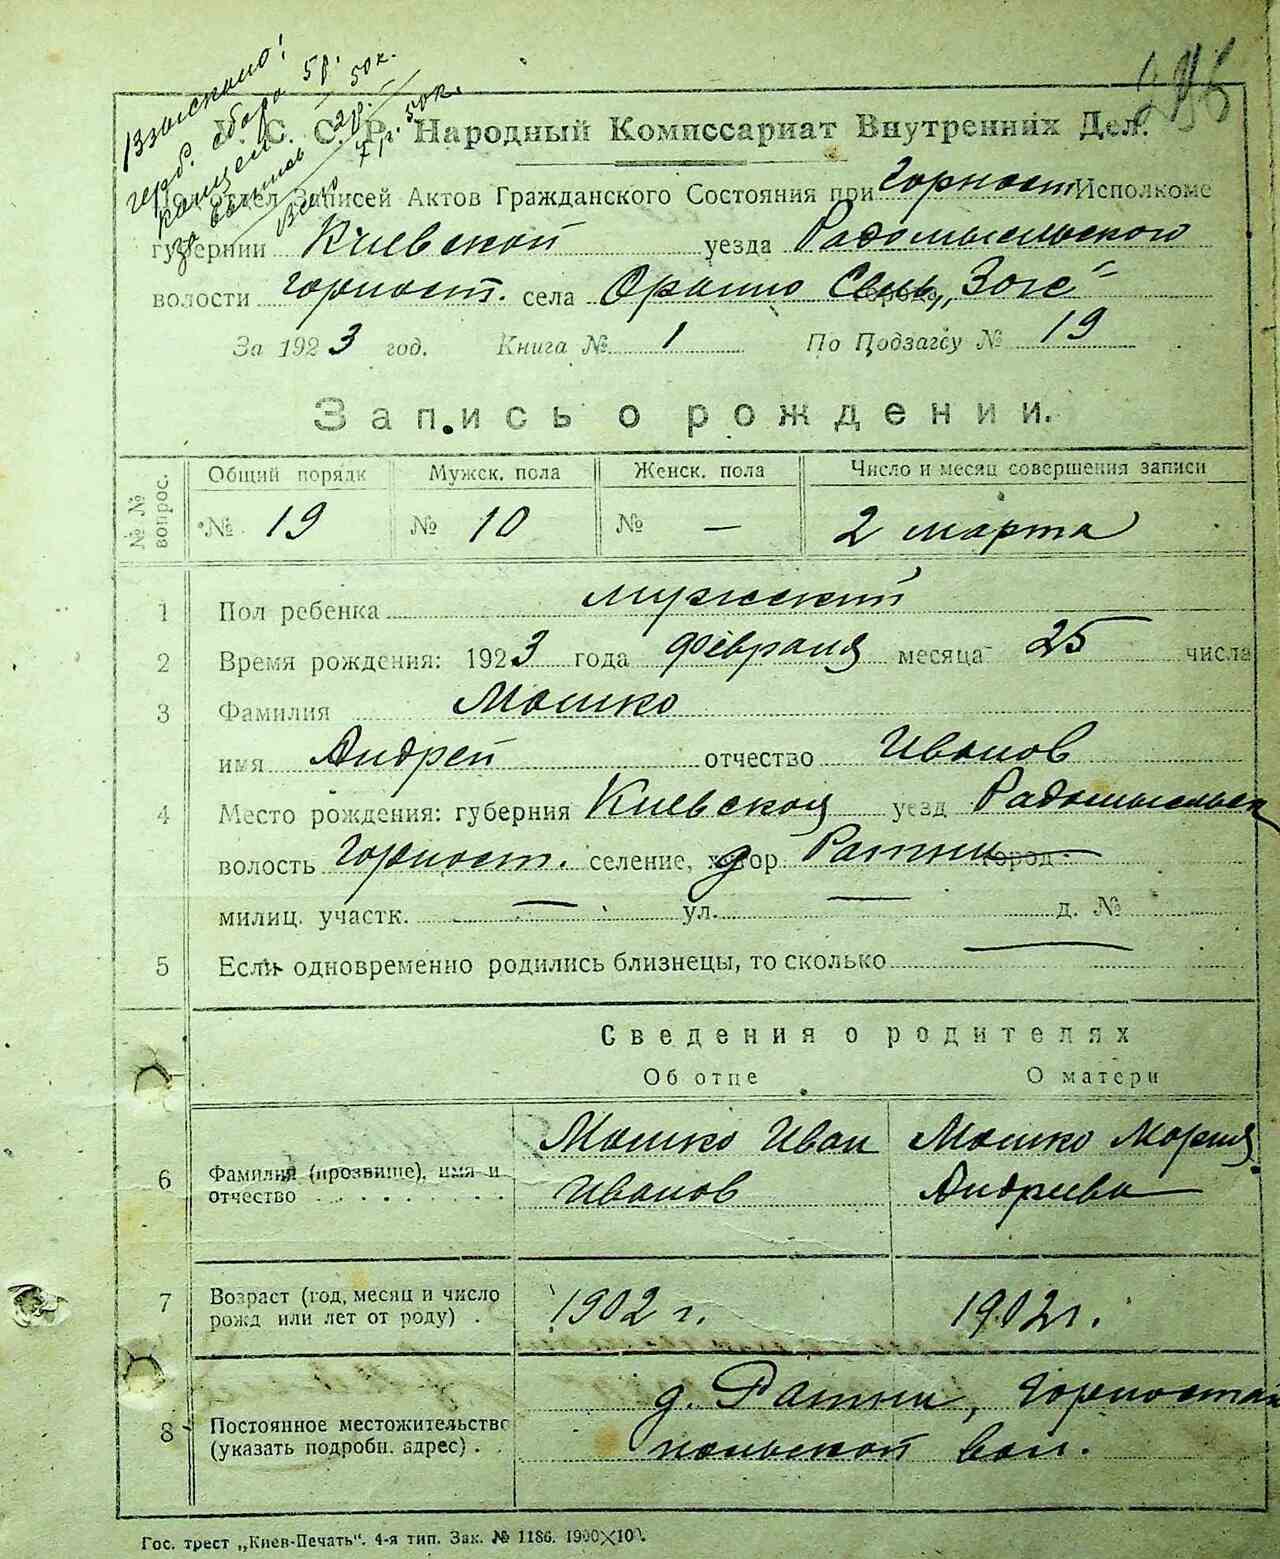 Взыскано!
герб. сбора 5р.
канцел. 2р. 50к.
за выпись
Всего 7р. 50к.
У. С. С. Р. Народный Комиссариат Внутренних Дел.
Подотдел Записей Актов Гражданского Состояния при Горност. Исполкоме
губернии Киевской уезда Радомысльского
волости Горност. села Оранно города Сель „Загс"
За 1923 год. Книга № 1 По Подзагсу № 19
Запись о рождении.
№ № вопрос. Общий порядк Мужск. пола Женск. пола Число и месяц совершения записи
№ 19 № 10 № — 2 марта
1 Пол ребенка мужеский
2 Время рождения: 1923 года февраля месяца 25 числа
3 Фамилия Мошко
имя Андрей отчество Иванов
4 Место рождения: губерния Киевская уезд Радомысльск
волость Горност. селение, хутор д Ратни город
милиц. участк. — ул. — д. №
5 Если одновременно родились близнецы, то сколько —
Сведения о родителях
Об отце О матери
Мошко Иван Мошко Мария
6 Фамилия (прозвище), имя и отчество Иванов Андреева
7 Возраст (год, месяц и число рожд или лет от роду) . 1902 г. 1902 г.
д. Ратни, Горностай
8 Постоянное местожительство (указать подробн. адрес) . . польской вол.
Гос. трест „Киев-Печать". 4-я тип. Зак. № 1186. 1900×100.